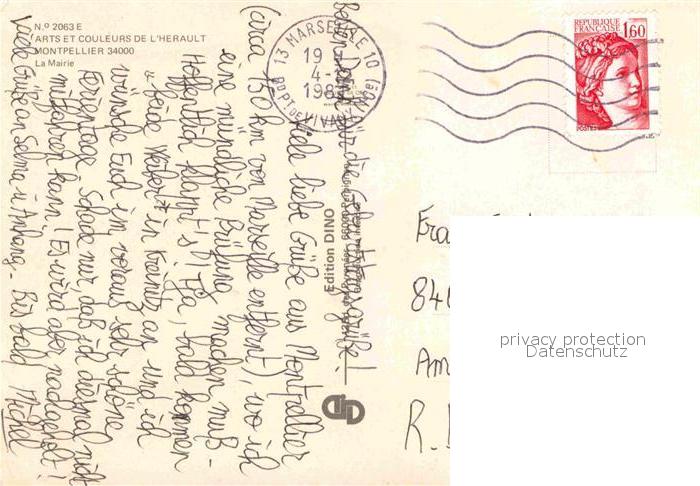 N.º 2063 E
ARTS ET COULEURS DE L'HERAULT
MONTPELLIER 34000
La Mairie
13 MARSEILLE 10
19
4-
198
VIVAUX
REPUBLIQUE
FRANÇAISE
1,60
POSTES
Edition DINO
Besten Dank für die Geburtstagsgrüße!
Viele liebe Grüße aus Montpellier
(circa 150 km von Marseille entfernt), wo ich
eine mündliche Prüfung machen muß -
Hoffentlich klappt's! Tja, bald kommen
"feine Weiber" in an und ich
wünsche Euch im voraus sehr schöne
Ferientage. Schade nur, daß ich diesmal nicht
mitfahren kann! Es wird aber nachgeholt!
Viele Grüße an Selma u. Anhang - Bis bald Michel
Fra
84
Am
R.
privacy protection
Datenschutz